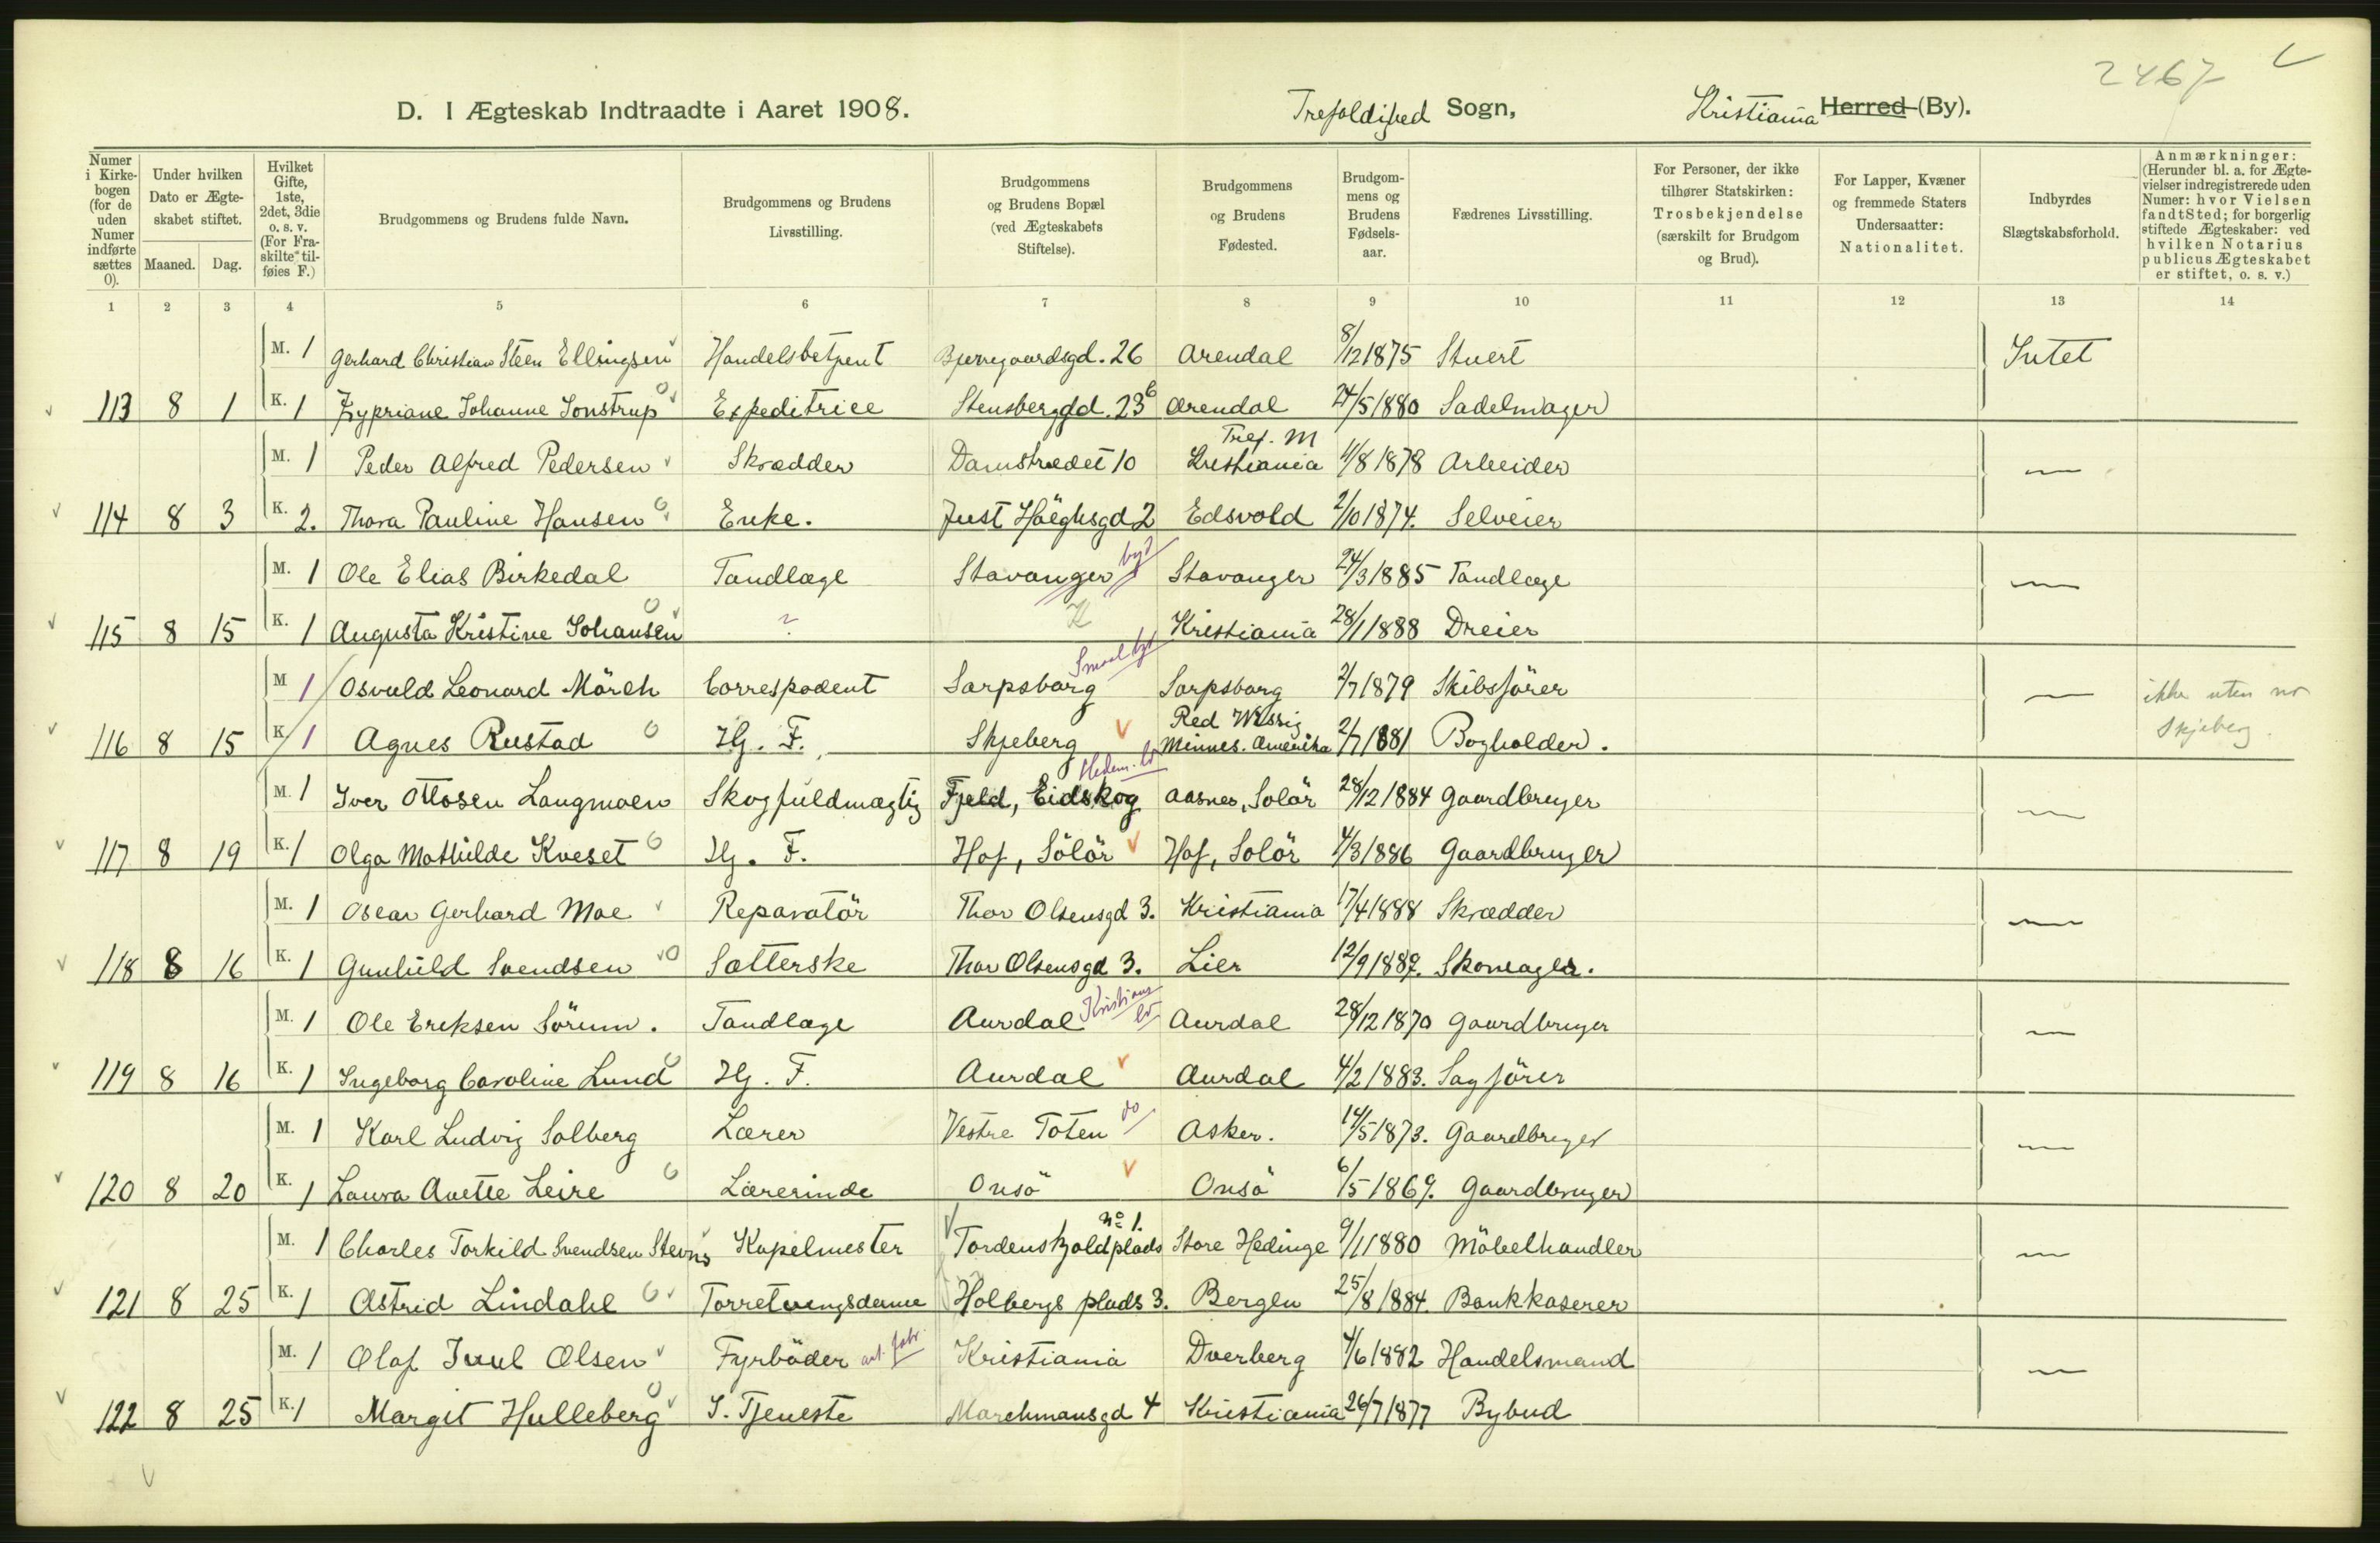 2467
D. I Ægteskab Indtraadte i Aaret 1908. Trefoldighed Sogn, Kristiania Herred (By).
Numer i Kirkebogen (for de uden Numer indførte sættes 0).
Under hvilken Dato er Ægteskabet stiftet.
Maaned. Dag.
Hvilket Gifte, 1ste, 2det, 3die o. s. v. (For Fraskilte tilføies F.)
Brudgommens og Brudens fulde Navn.
Brudgommens og Brudens Livsstilling.
Brudgommens og Brudens Bopæl (ved Ægteskabets Stiftelse).
Brudgommens og Brudens Fødested.
Brudgommens og Brudens Fødselsaar.
Fædrenes Livsstilling.
For Personer, der ikke tilhører Statskirken: Trosbekjendelse (særskilt for Brudgom og Brud).
For Lapper, Kvæner og fremmede Staters Undersaatter: Nationalitet.
Indbyrdes Slægtskabsforhold.
Anmærkninger: (Herunder bl. a. for Ægtevielser indregistrerede uden Numer: hvor Vielsen fandt Sted; for borgerlig stiftede Ægteskaber: ved hvilken Notarius publicus Ægteskabet er stiftet, o. s. v.)
1 2 3 4 5 6 7 8 9 10 11 12 13 14
M. 1 Gerhard Christian Steen Ellingsen Handelsbetjent Bjerregaardsgd. 26 Arendal 8/12 1875 Stuert Intet
113 8 1 K. 1 Zypriane Johanne Sonstrup Expeditrice Stensberggd. 23 b Arendal 24/5 1880 Sadelmager
M. 1 Peder Alfred Pedersen Skrædder Damstrædet 10 Tref. M Kristiania 11/8 1878 Arbeider —
114 8 3 K. 2. Thora Pauline Hansen Enke. Just Høeghsgd 2 Edsvold 2/10 1874. Selveier
M. 1 Ole Elias Birkedal Tandlæge Stavanger by Stavanger 24/3 1885 Tandlæge —
115 8 15 K. 1 Augusta Kristine Johansen ? K Kristiania 28/1 1888 Dreier
M 1 Osvald Leonard Mörch Correspodent Sarpsborg Smaal. by Sarpsborg 2/7 1879 Skibsförer — ikke uten no
116 8 15 K 1 Agnes Rustad Hj. F. Skjeberg Red Wissig Minnes. Amerika 2/7 1881 Bogholder. Skjeberg
M. 1 Iver Ottosen Langmoen Skogfuldmægtig Fjeld, Eidskog Hedem. Aasnes, Solör 28/12 1884 Gaardbruger —
117 8 19 K. 1 Olga Mathilde Kveset Hj. F. Hof, Sölör Hof, Solör 4/3 1886 Gaardbruger
M. 1 Oscar Gerhard Moe Reparatör Thor Olsensgd 3. Kristiania 17/4 1888 Skrædder —
118 8 16 K. 1 Gunhild Svendsen Sætterske Thor Olsensgd 3. Lier 12/9 1887. Skomager.
M. 1 Ole Eriksen Sörum. Tandlæge Aurdal Kristians Aurdal 28/12 1870 Gaardbruger —
119 8 16 K. 1 Ingeborg Caroline Lund Hj. F. Aurdal Aurdal 4/2 1883. Sagförer
M. 1 Karl Ludvig Solberg Lærer Vestre Toten do Asker. 14/5 1873. Gaardbruger —
120 8 20 K. 1 Laura Anette Leire Lærerinde Onsö Onsö 6/5 1869. Gaardbruger
M. 1 Charles Torkild Svendsen Stevns Kapelmester Tordenskjoldplads No 1. Store Hedinge 9/1 1880 Möbelhandler —
121 8 25 K. 1 Astrid Lindahl Forretningsdame Holbergs plads 3. Bergen 25/8 1884. Bankkaserer
M. 1 Olaf Juul Olsen Fyrböder ant. fabr. Kristiania Dverberg 4/6 1882 Handelsmand —
122 8 25 K. 1 Margit Hulleberg I. Tjeneste Marchmansgd 4 Kristiania 26/7 1877 Bybud